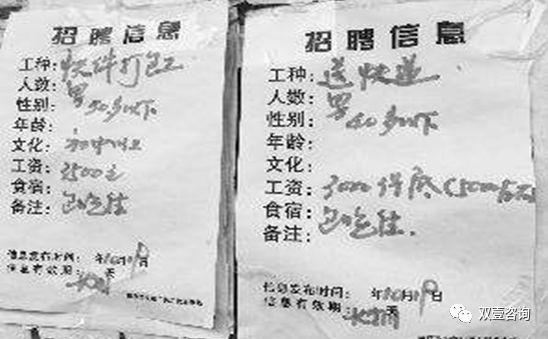 招聘信息
工种：快件打包工
人数：男
性别：40岁以下
年龄：
文化：初中以上
工资：2500元
食宿：包吃住
备注：
信息发布时间： 年10月19日
信息有效期：长期 天
招聘信息
工种：送快递
人数：男
性别：40岁以下
年龄：
文化：
工资：3000保底(5000左右)
食宿：包吃住
备注：
信息发布时间： 年10月19日
信息有效期：长期 天
双壹咨询